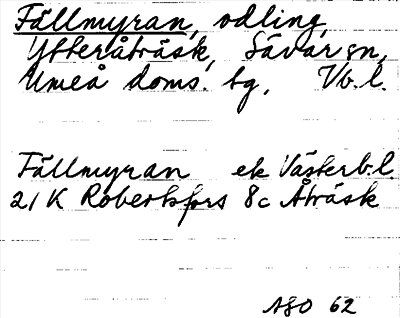 Fällmyran, odling,
Ytteråträsk, Sävar sn,
Umeå doms. tg, Vb.l.
Fällmyran ek Västerb.l.
21 K Robertsfors 8c Åträsk
ASO 62